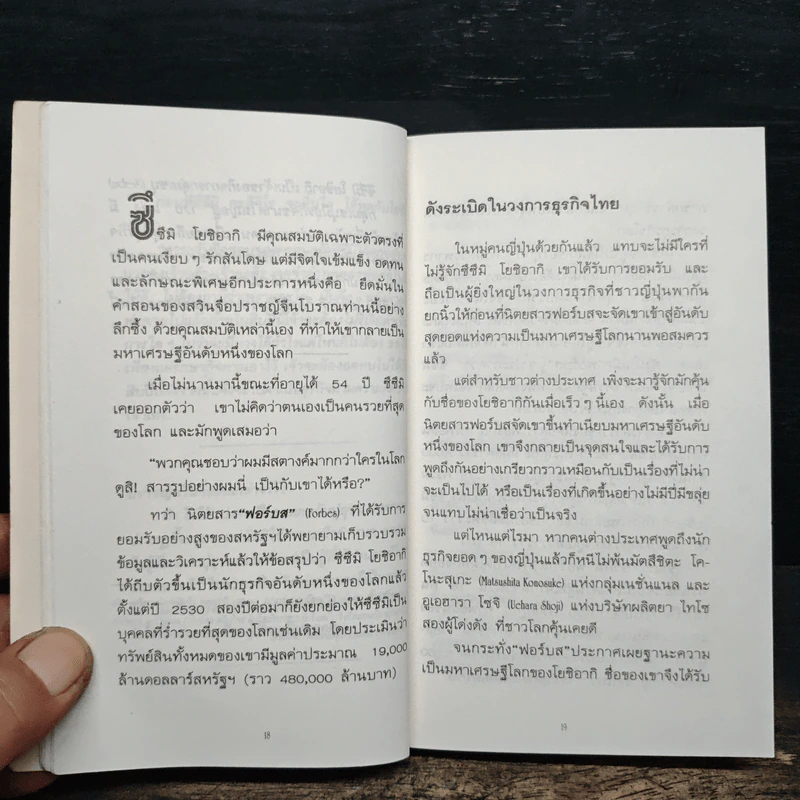 ซึซึมิ โยชิอากิ มีคุณสมบัติเฉพาะตัวตรงที่
เป็นคนเงียบๆ รักสันโดษ แต่มีจิตใจเข้มแข็ง อดทน
และลักษณะพิเศษอีกประการหนึ่งคือ ยึดมั่นใน
คำสอนของสวินจื่อปราชญ์จีนโบราณท่านนี้อย่าง
ลึกซึ้ง ด้วยคุณสมบัติเหล่านี้เอง ที่ทำให้เขากลายเป็น
มหาเศรษฐีอันดับหนึ่งของโลก
เมื่อไม่นานมานี้ขณะที่อายุได้ 54 ปี ซึซึมิ
เคยออกตัวว่า เขาไม่คิดว่าตนเองเป็นคนรวยที่สุด
ของโลก และมักพูดเสมอว่า
“พวกคุณชอบว่าผมมีสตางค์มากกว่าใครในโลก
ดูสิ! สารรูปอย่างผมนี่ เป็นกับเขาได้หรือ?”
ทว่า นิตยสาร“ฟอร์บส” (Forbes) ที่ได้รับการ
ยอมรับอย่างสูงของสหรัฐฯได้พยายามเก็บรวบรวม
ข้อมูลและวิเคราะห์แล้วให้ข้อสรุปว่า ซึซึมิ โยชิอากิ
ได้ถีบตัวขึ้นเป็นนักธุรกิจอันดับหนึ่งของโลกแล้ว
ตั้งแต่ปี 2530 สองปีต่อมาก็ยังยกย่องให้ซึซึมิเป็น
บุคคลที่ร่ำรวยที่สุดของโลกเช่นเดิม โดยประเมินว่า
ทรัพย์สินทั้งหมดของเขามีมูลค่าประมาณ 19,000
ล้านดอลลาร์สหรัฐฯ (ราว 480,000 ล้านบาท)
18
ดังระเบิดในวงการธุรกิจไทย
ในหมู่คนญี่ปุ่นด้วยกันแล้ว แทบจะไม่มีใครที่
ไม่รู้จักซึซึมิ โยชิอากิ เขาได้รับการยอมรับ และ
ถือเป็นผู้ยิ่งใหญ่ในวงการธุรกิจที่ชาวญี่ปุ่นพากัน
ยกนิ้วให้ก่อนที่นิตยสารฟอร์บสจะจัดเขาเข้าสู่อันดับ
สุดยอดแห่งความเป็นมหาเศรษฐีโลกนานพอสมควร
แล้ว
แต่สำหรับชาวต่างประเทศ เพิ่งจะมารู้จักมักคุ้น
กับชื่อของโยชิอากิกันเมื่อเร็วๆนี้เอง ดังนั้น เมื่อ
นิตยสารฟอร์บสจัดเขาขึ้นทำเนียบมหาเศรษฐีอันดับ
หนึ่งของโลก เขาจึงกลายเป็นจุดสนใจและได้รับการ
พูดถึงกันอย่างเกรียวกราวเหมือนกับเป็นเรื่องที่ไม่น่า
จะเป็นไปได้ หรือเป็นเรื่องที่เกิดขึ้นอย่างไม่มีปี่มีขลุ่ย
จนแทบไม่น่าเชื่อว่าเป็นจริง
แต่ไหนแต่ไรมา หากคนต่างประเทศพูดถึงนัก
ธุรกิจยอดๆของญี่ปุ่นแล้วก็หนีไม่พ้นมัตสึชิตะ โค-
โนะสุเกะ (Matsushita Konosuke) แห่งกลุ่มเนชั่นแนล และ
อูเอฮารา โชจิ (Uehara Shoji) แห่งบริษัทผลิตยา ไทโช
สองผู้โด่งดัง ที่ชาวโลกคุ้นเคยดี
จนกระทั่ง“ฟอร์บส”ประกาศเผยฐานะความ
เป็นมหาเศรษฐีโลกของโยชิอากิ ชื่อของเขาจึงได้รับ
19